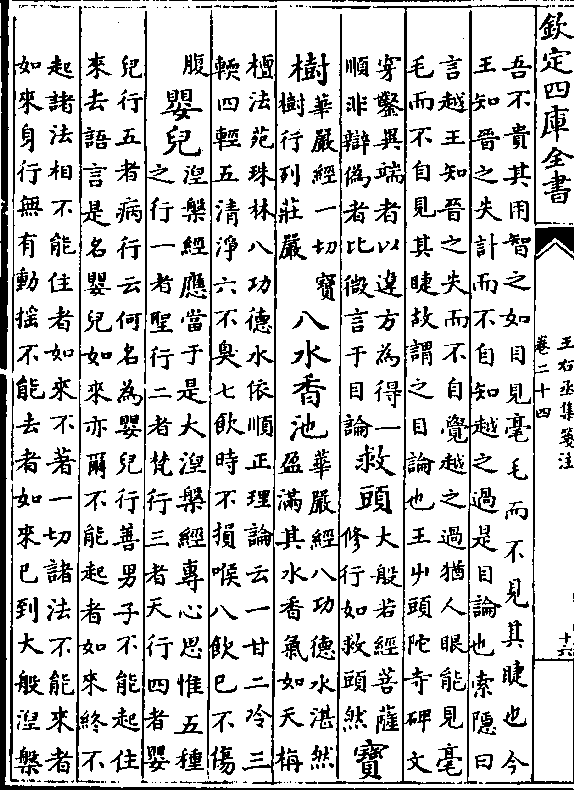 欽定四庫全書
王右丞集箋注
卷二十四
十六
吾不貴其用智之如目見毫毛而不見其睫也今
王知晉之失計而不自知越之過是目論也索隱曰
言越王知晉之失而不自覺越之過猶人眼能見毫
毛而不自見其睫故謂之目論也王屮頭陀寺碑文
穿鑿異端者以違方為得一
順非辯偽者比微言于目論
救頭
大般若經菩薩
修行如救頭然
寶
樹
華嚴經一切寶
樹行列莊嚴
八水香池
華嚴經八功德水湛然
盈滿其水香氣如天栴
檀法苑珠林八功德水依順正理論云一甘二冷三
輭四輕五清淨六不臭七飲時不損喉八飲已不傷
腹
嬰兒
涅槃經應當于是大涅槃經專心思惟五種
之行一者聖行二者梵行三者天行四者嬰
兒行五者病行云何名為嬰兒行善男子不能起住
來去語言是名嬰兒如來亦爾不能起者如來終不
起諸法相不能住者如來不著一切諸法不能來者
如來身行無有動搖不能去者如來已到大般涅槃